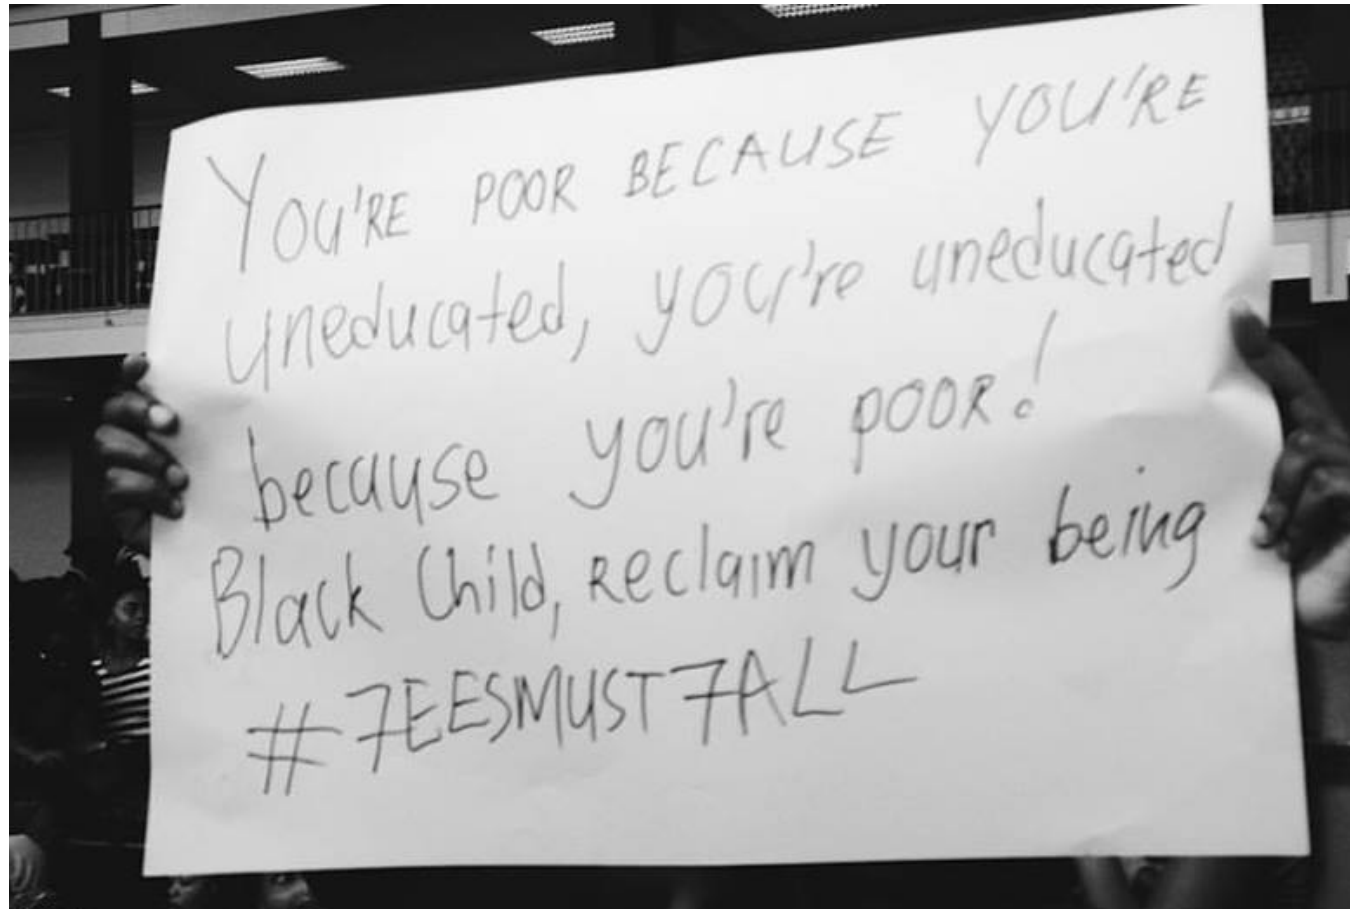 YOU'RE POOR BECAUSE YOU'RE
uneducated, you're uneducated
because you're POOR!
Black Child, Reclaim your being
#7EESMUST7ALL